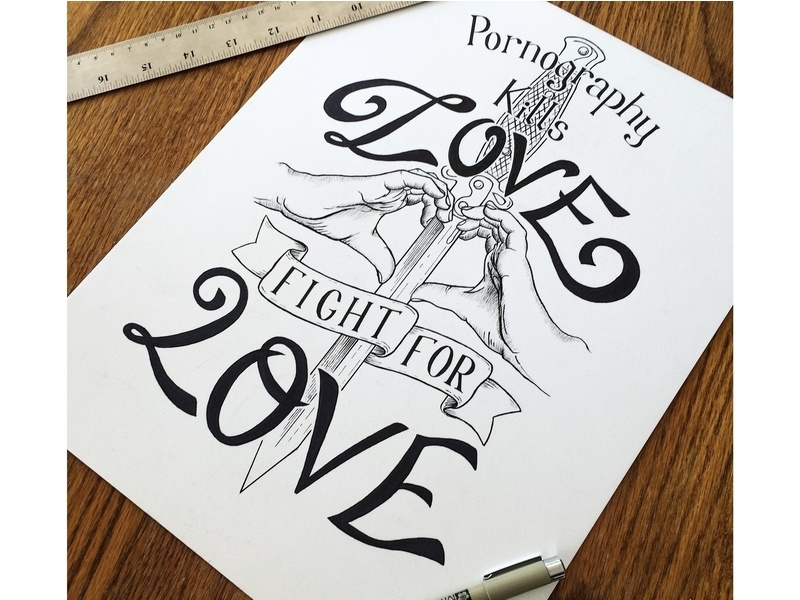 Pornography
Kills
LOVE
FIGHT FOR
LOVE
16 15 14 13 12 11 10